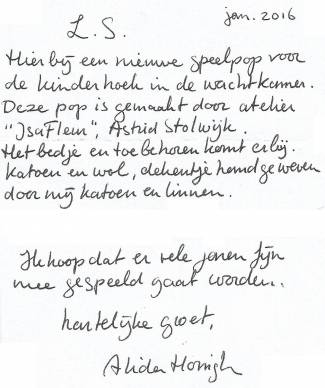 jan. 2016
L.S.
Hierbij een nieuwe speelpop voor
de kinderhoek in de wachtkamer.
Deze pop is gemaakt door atelier
"IsaFleur", Astrid Stolwijk.
Het bedje en toebehoren komt erbij.
Katoen en wol, dekentje handgeweven
door mij katoen en linnen.
Ik hoop dat er vele jaren fijn
mee gespeeld gaat worden..
hartelijke groet,
Alida